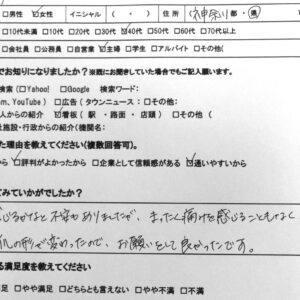 □男性 ☑女性 イニシャル ( ・ ) 住所 神奈川 都・県
□10代未満 □10代 □20代 □30代 ☑40代 □50代 □60代 □70代以上
□会社員 □公務員 □自営業 ☑主婦 □学生 □アルバイト □その他(
でお知りになりましたか？※既にお聞きしていた場合でもご記入願います。
検索 (□Yahoo! □Google 検索ワード:
m、YouTube ) □広告 (タウンニュース: □その他:
人からの紹介 ☑看板 ( 駅 ・ 路面 ・ 店頭 ) □その他(
施設・行政からの紹介 (機関名:
た理由を教えてください(複数回答可)。
から □評判がよかったから □企業として信頼感がある ☑通いやすいから
てみていかがでしたか?
じるかなと不安もありましたが、まったく痛みを感じることもなく
爪の形が変わったので、お願いをして良かったです。
る満足度を教えてください
足 □やや満足 □どちらとも言えない □やや不満 □不満